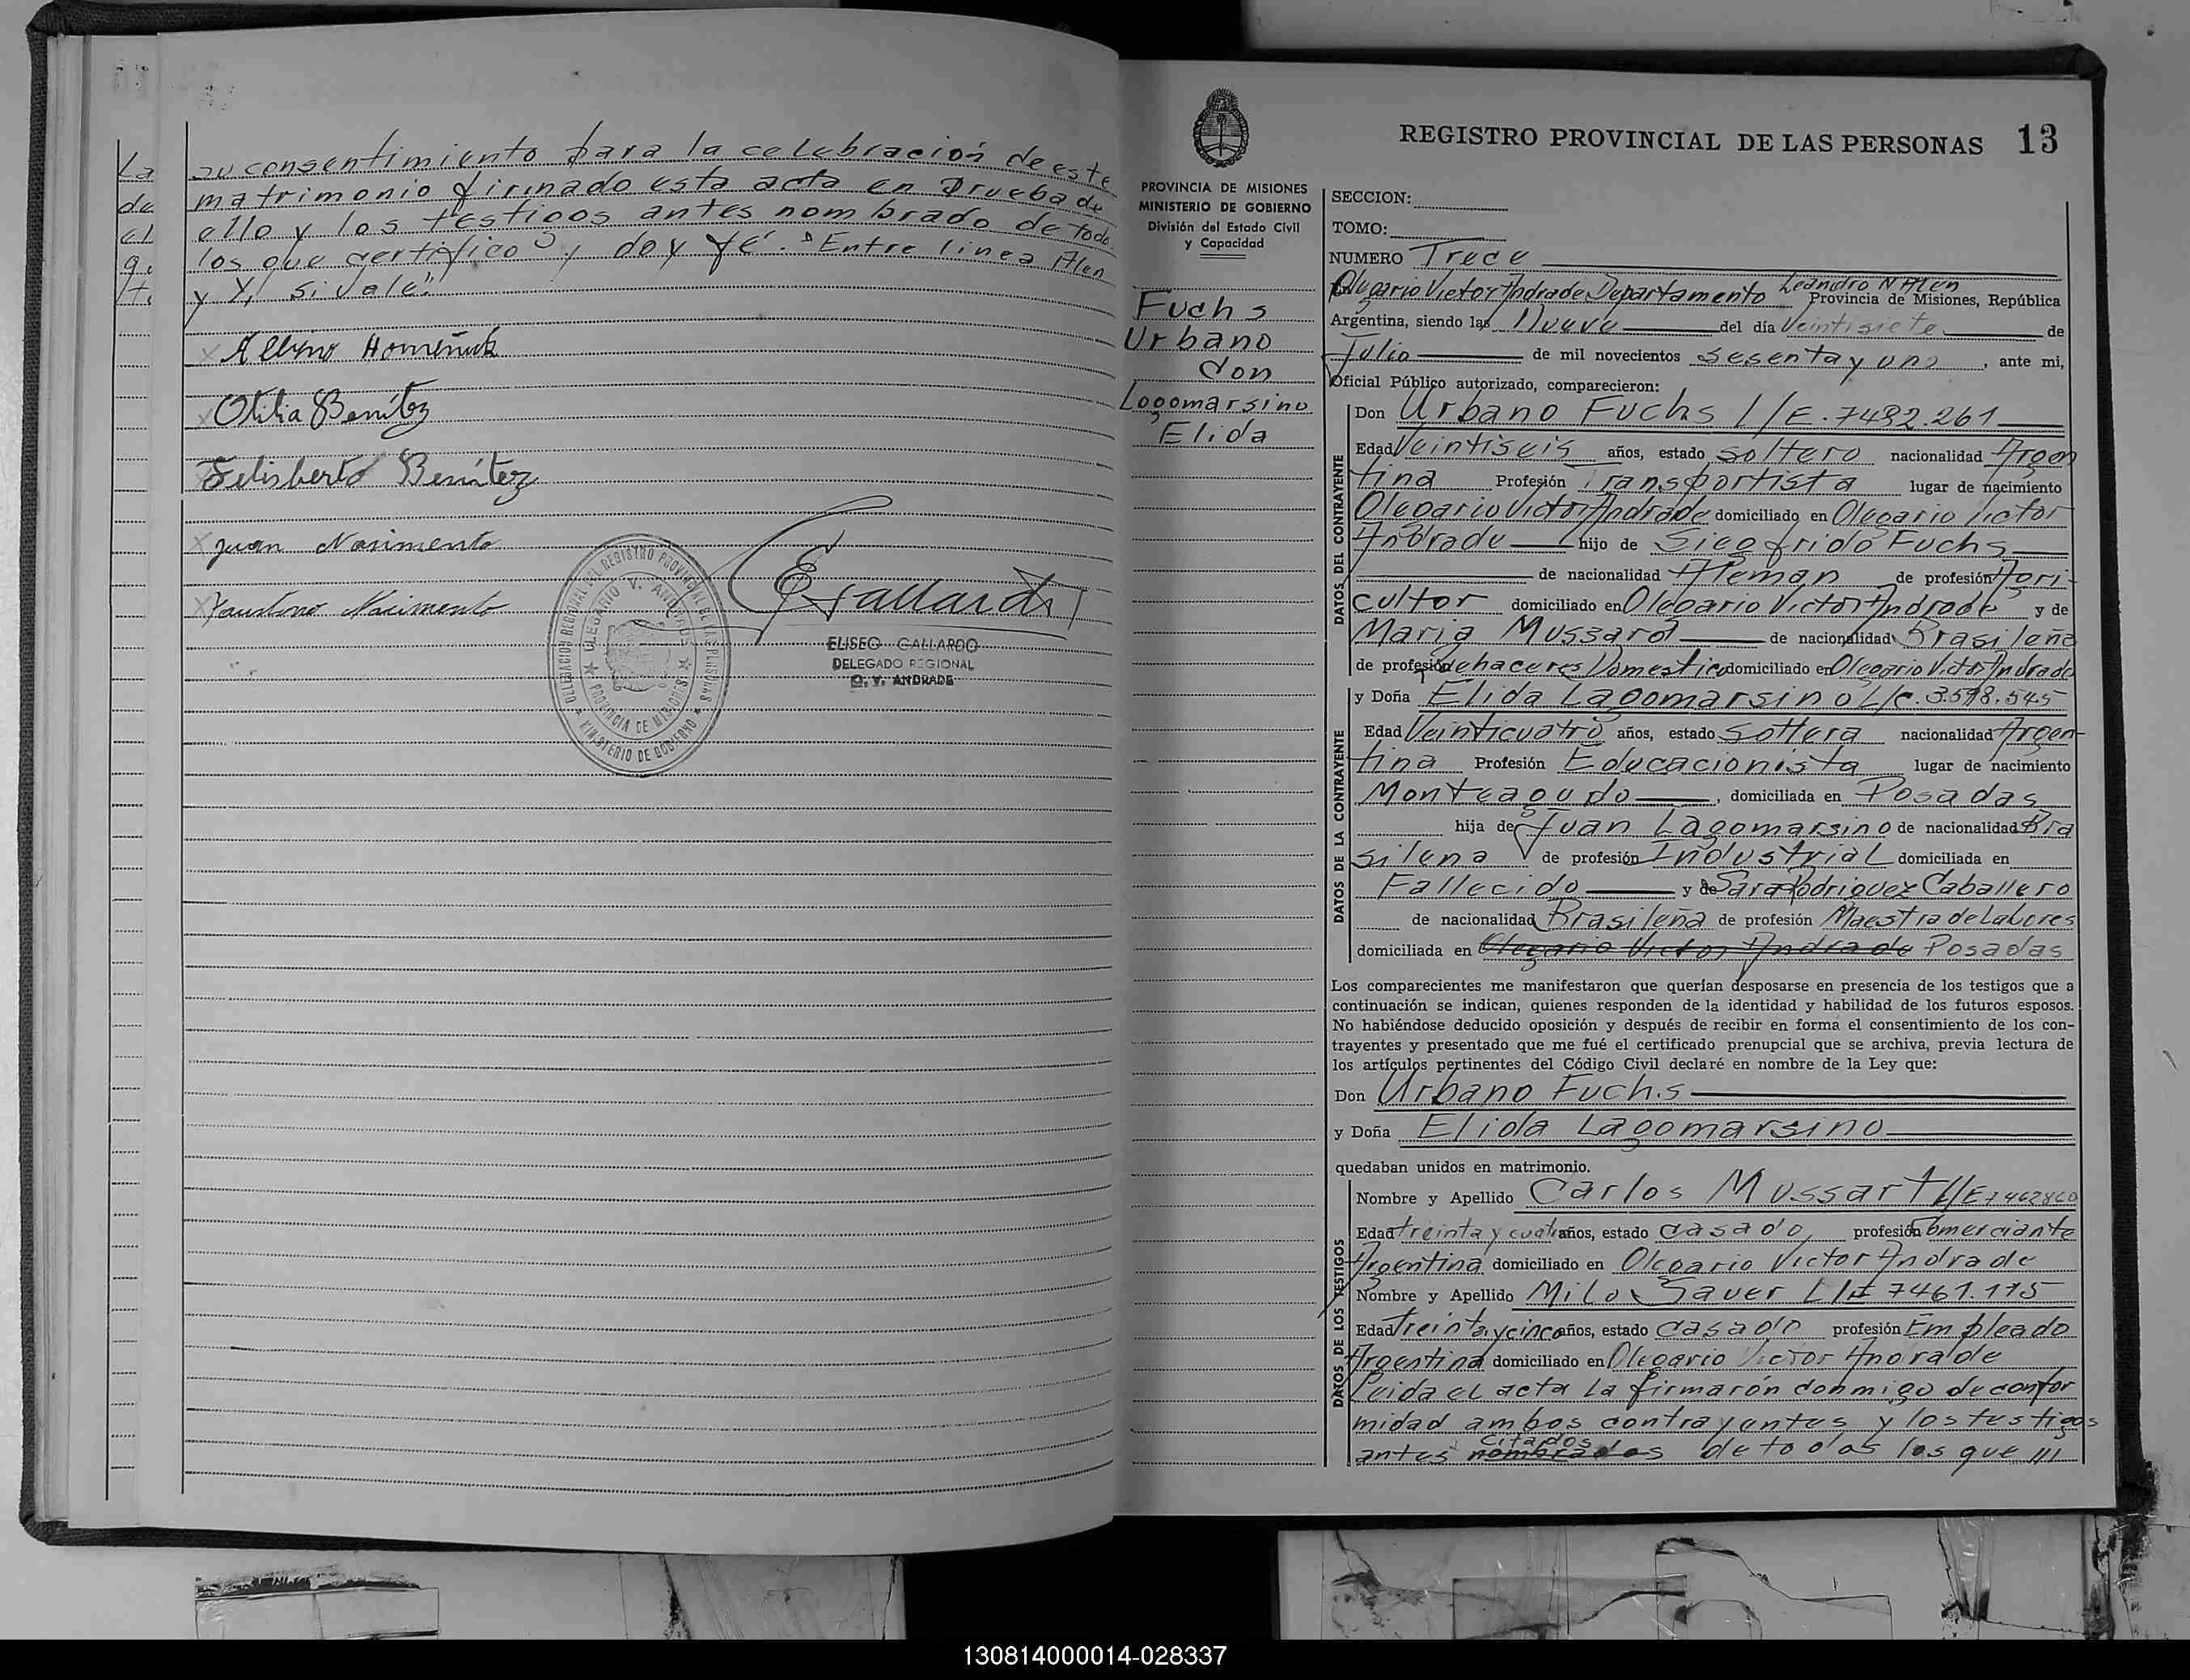 La
de
el
su consentimiento para la celebración de este
matrimonio firmado esta acta en prueba de
ello y los testigos antes nombrado de todo
los que certifico y doy fé. "Entre linea Alen
y Y, si Vale."
Albino Homeñuk
Otilia Benítez
Felisberto Benítez
Juan Nasimento
Faustino Nacimento
DELEGACION REGIONAL DEL REGISTRO PROVINCIAL DE LAS PERSONAS
OLEGARIO V. ANDRADE
PROVINCIA DE MISIONES
MINISTERIO DE GOBIERNO
EGallardo
ELISEO GALLARDO
DELEGADO REGIONAL
O. V. ANDRADE
REGISTRO PROVINCIAL DE LAS PERSONAS 13
PROVINCIA DE MISIONES
MINISTERIO DE GOBIERNO
División del Estado Civil
y Capacidad
Fuchs
Urbano
don
Logomarsino
Elida
SECCION:
TOMO:
NUMERO Trece
En Olegario Victor Andrade Departamento Leandro N Alen Provincia de Misiones, República
Argentina, siendo las Nueve del día Veintisiete de
Julio de mil novecientos Sesenta y uno, ante mi,
Oficial Público autorizado, comparecieron:
DATOS DEL CONTRAYENTE
Don Urbano Fuchs L/E. 7482.261
Edad Veintiseis años, estado soltero nacionalidad Argen
tina Profesión Transportista lugar de nacimiento
Olegario Victor Andrade domiciliado en Olegario Victor
Andrade hijo de Siegfrido Fuchs
de nacionalidad Aleman de profesión Agri-
cultor domiciliado en Olegario Victor Andrade y de
Maria Mussard de nacionalidad Brasileña
de profesión dehaceres Domestico domiciliado en Olegario Victor Andrade
DATOS DE LA CONTRAYENTE
y Doña Elida Lagomarsino L/c. 3.598.545
Edad Veinticuatro años, estado Soltera nacionalidad Argen-
tina Profesión Educacionista lugar de nacimiento
Monteagudo, domiciliada en Posadas
hija de Juan Lagomarsino de nacionalidad Bra
silena de profesión Industrial domiciliada en
Fallecido y de Sara Rodriguez Caballero
de nacionalidad Brasileña de profesión Maestra de Labores
domiciliada en Olegario Victor Andrade Posadas
Los comparecientes me manifestaron que querían desposarse en presencia de los testigos que a
continuación se indican, quienes responden de la identidad y habilidad de los futuros esposos.
No habiéndose deducido oposición y después de recibir en forma el consentimiento de los con-
trayentes y presentado que me fué el certificado prenupcial que se archiva, previa lectura de
los artículos pertinentes del Código Civil declaré en nombre de la Ley que:
Don Urbano Fuchs
y Doña Elida Lagomarsino
quedaban unidos en matrimonio.
DATOS DE LOS TESTIGOS
Nombre y Apellido Carlos Mussart L/E 7462860
Edad treinta y cuatro años, estado casado, profesión Comerciante
Argentina domiciliado en Olegario Victor Andrade
Nombre y Apellido Milo Sauer L/E 7461.115
Edad Treinta y cinco años, estado casado profesión Empleado
Argentina domiciliado en Olegario Victor Andrade
Leida el acta la firmarón conmigo de confor
midad ambos contrayentes y los testigos
antes nombrados citados de todos los que ///
130814000014-028337